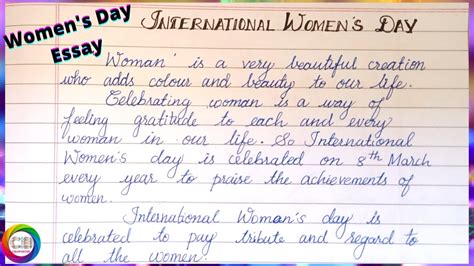 Women's Day
Essay
INTERNATIONAL WOMEN'S DAY
'Woman' is a very beautiful creation
who adds colour and beauty to our life.
Celebrating woman is a way of
feeling gratitude to each and every
woman in our life. So International
Women's day is celebrated on 8th March
every year to praise the achievements of
women.
International Woman's day is
celebrated to pay tribute and regard to
all the women